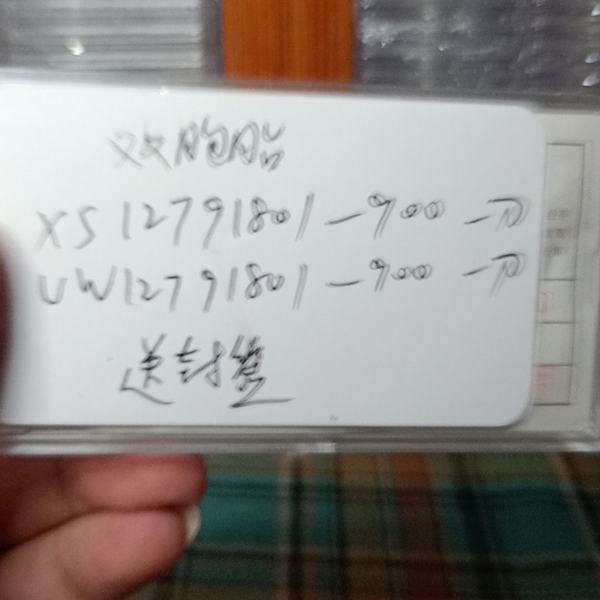 双胞胎
XS12791801—900 一刀
UW12791801—900 一刀
送封签